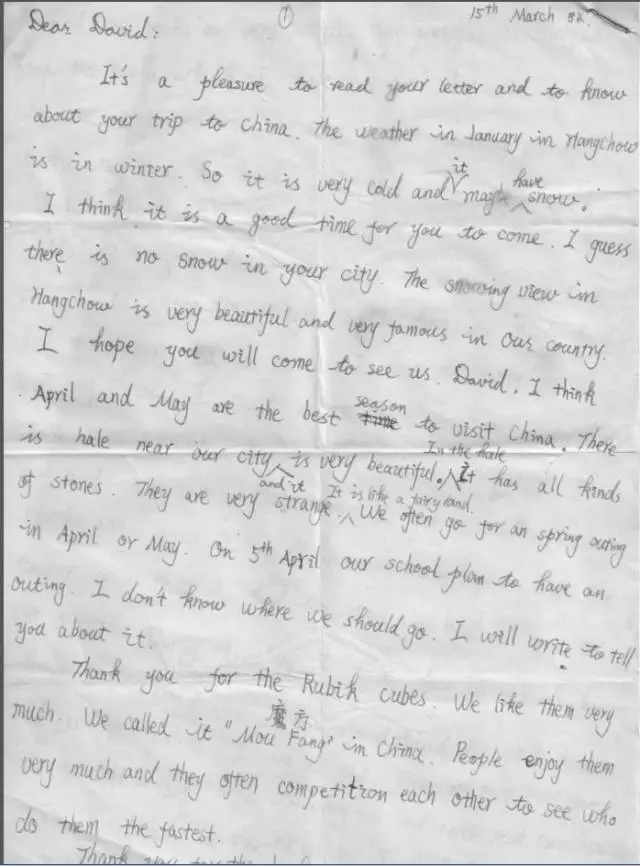 ①
15th March 82.
Dear David:
It's a pleasure to read your letter and to know
about your trip to China. The weather in January in Hangchow
is in winter. So it is very cold and it maybe have snow.
I think it is a good time for you to come. I guess
there is no snow in your city. The snowing view in
Hangchow is very beautiful and very famous in our country.
I hope you will come to see us. David, I think
April and May are the best time season to visit China. There
is hale near our city and it is very beautiful. In the hale It has all kinds
of stones. They are very strange. It is like a fairy land. We often go for an spring outing
in April or May. On 5th April our school plan to have an
outing. I don't know where we should go. I will write to tell
you about it.
Thank you for the Rubik cubes. We like them very
much. We called it "Mou Fang" 魔方 in China. People enjoy them
very much and they often competition each other to see who
do them the fastest.
Thank you for the